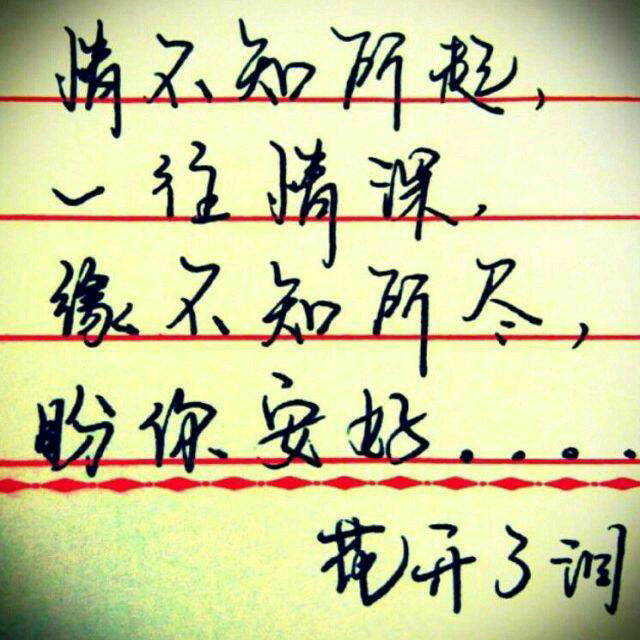 情不知所起,
一往情深,
缘不知所尽,
盼你安好....
花开了润